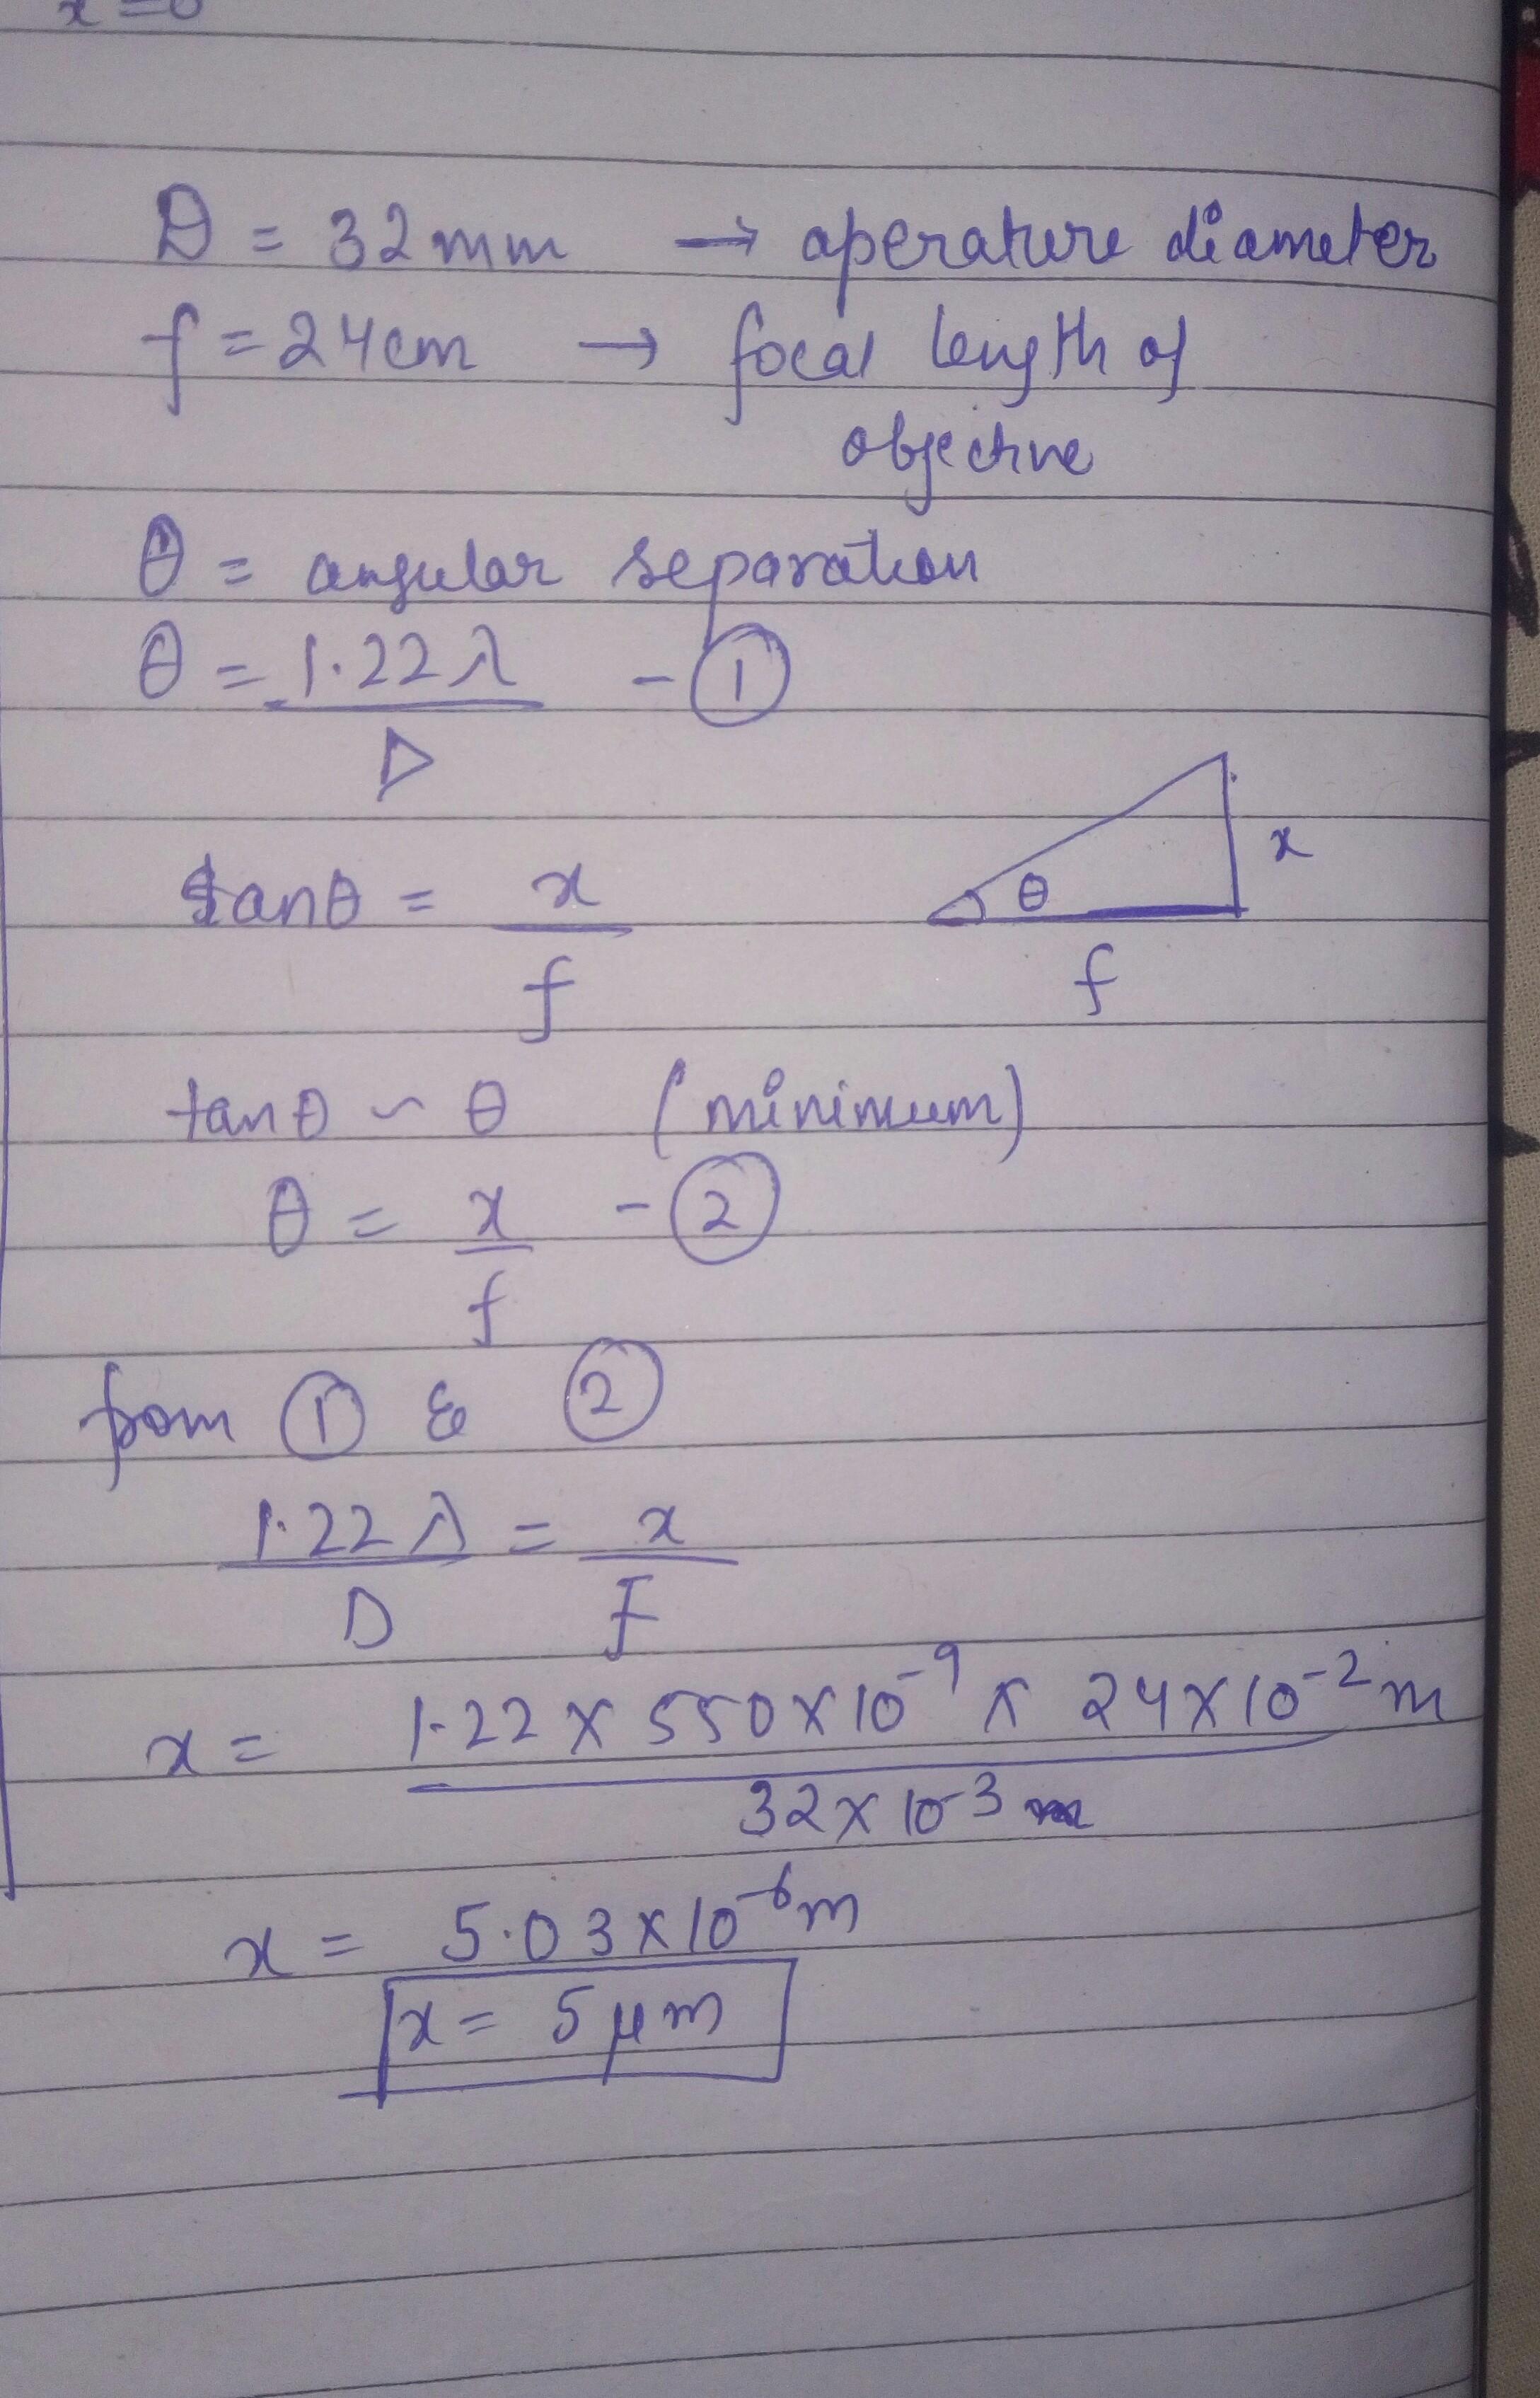 x=0
D = 32mm → aperature diameter
f = 24cm → focal length of
objective
θ = angular separation
θ = 1.22λ - ①
D
tanθ = x
f
x
θ
f
tanθ ~ θ (minimum)
θ = x - ②
f
from ① & ②
1.22λ = x
D F
x = 1.22 × 550×10⁻⁹ × 24×10⁻² m
32×10⁻³
x = 5.03×10⁻⁶m
x = 5 μm